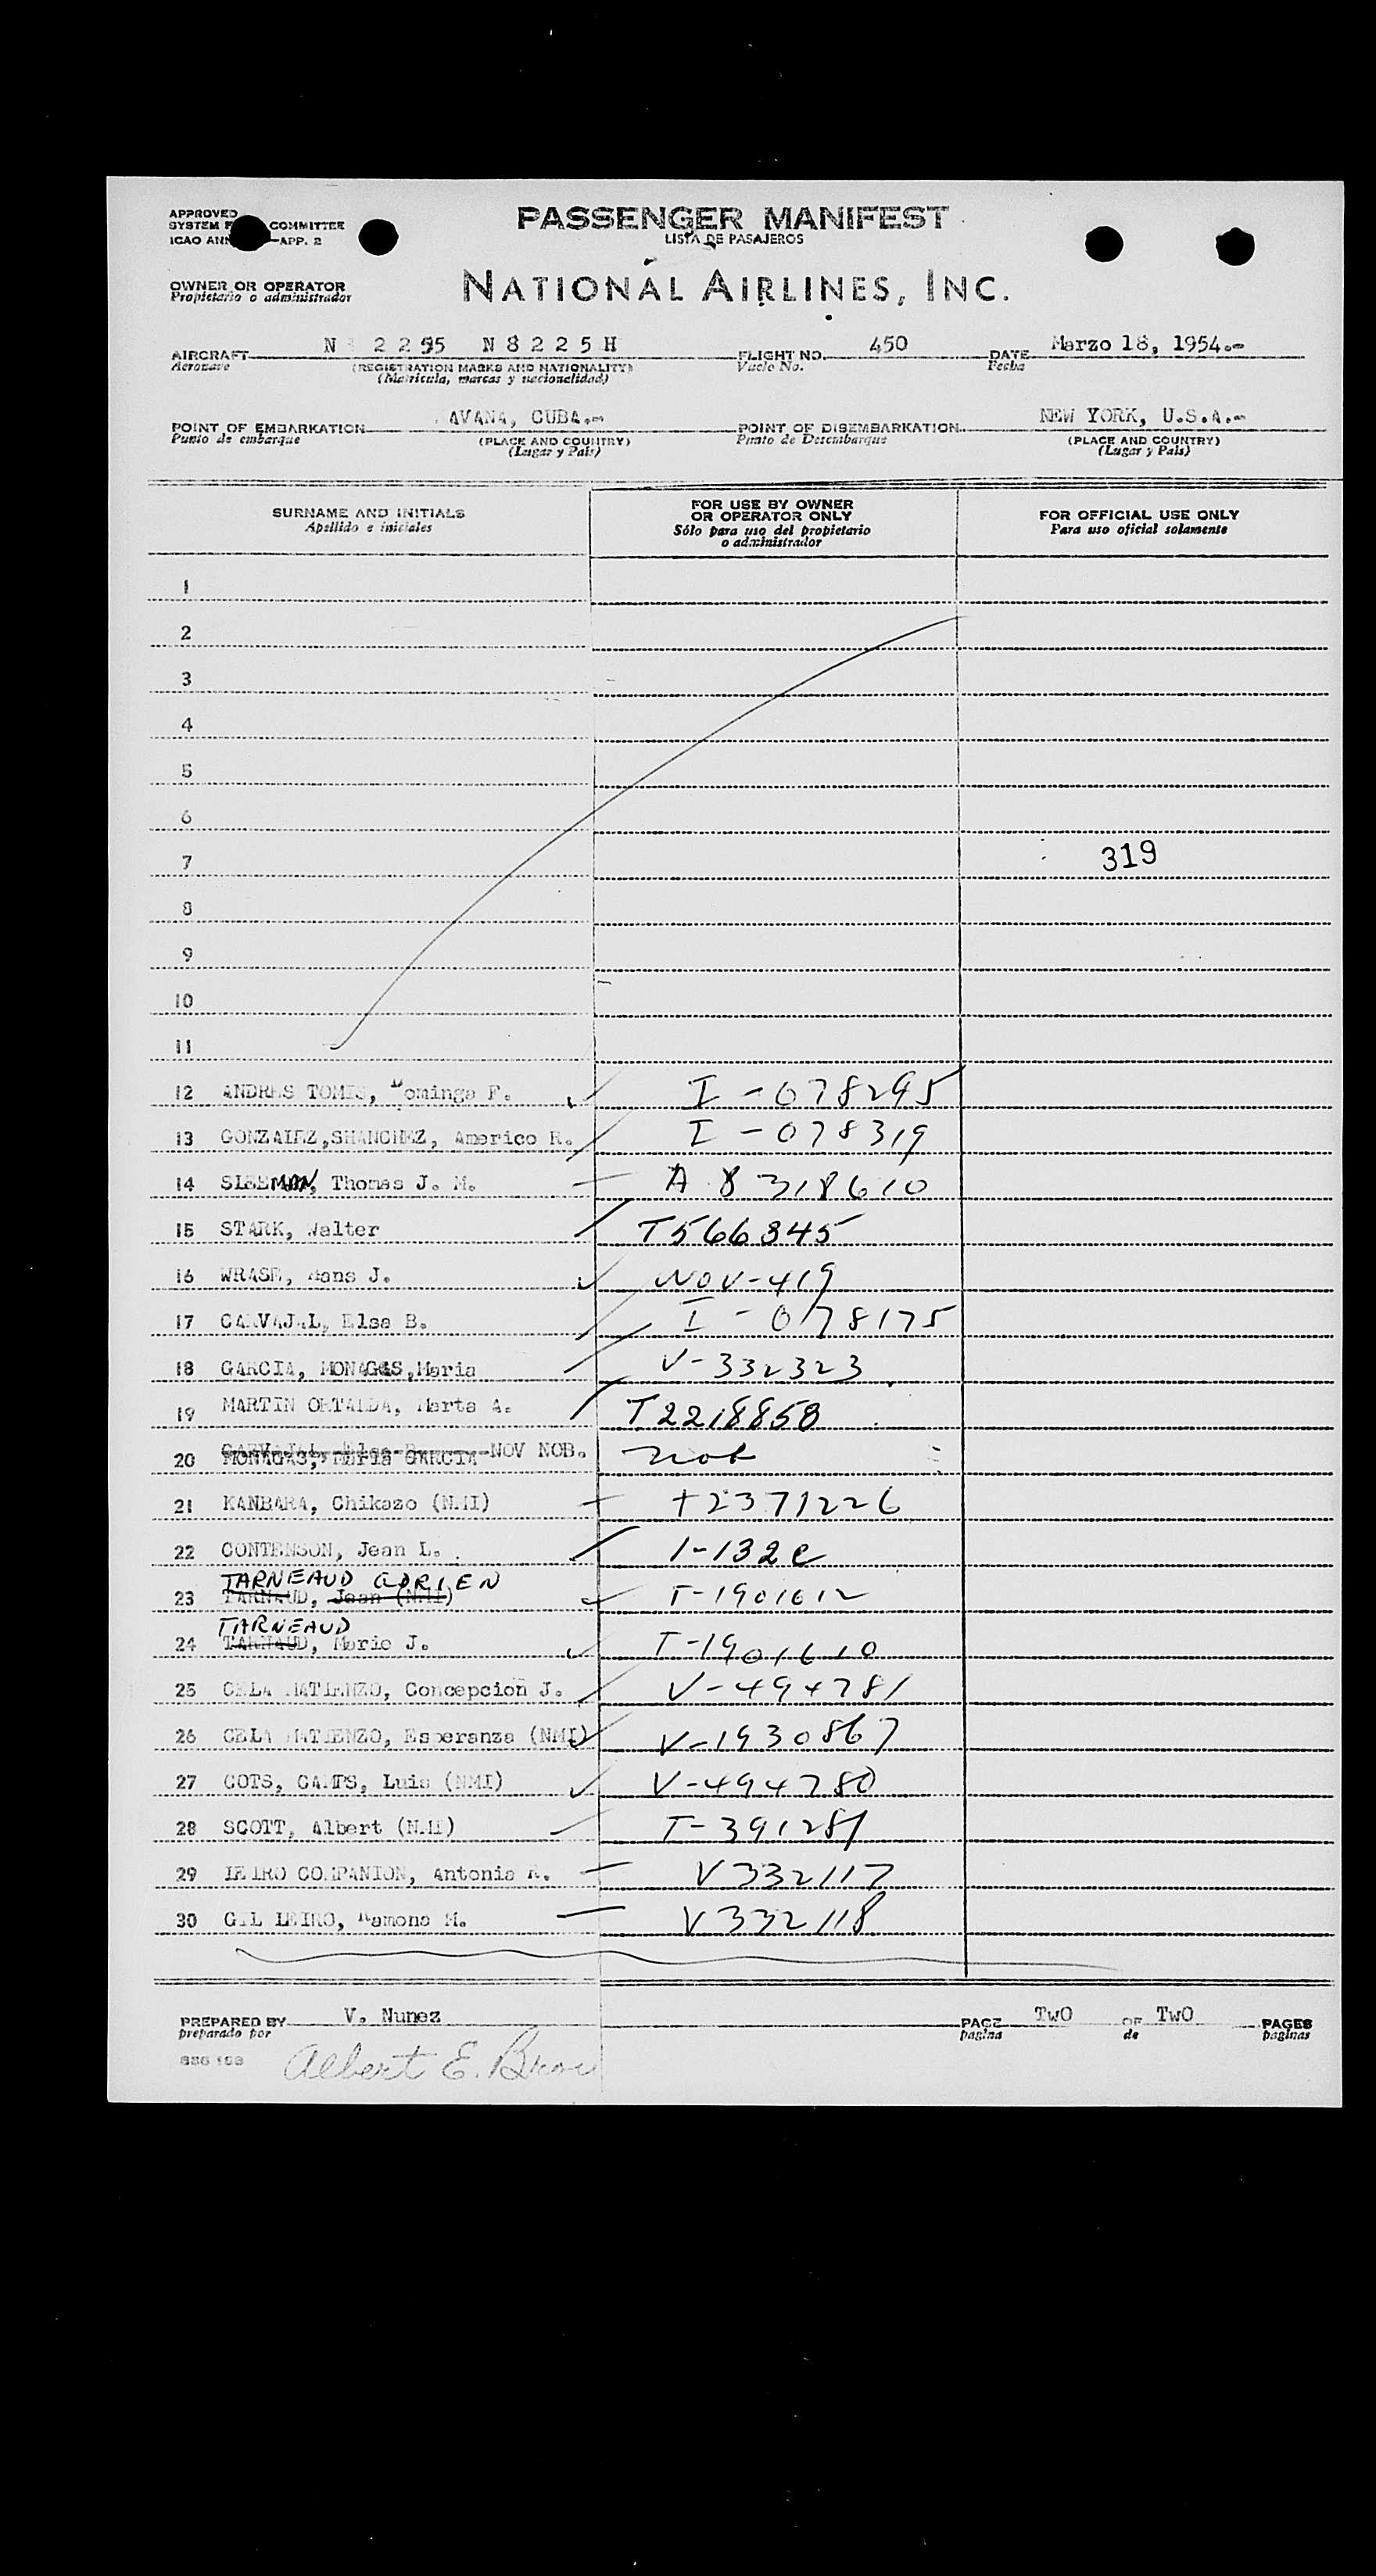 APPROVED PASSENGER MANIFEST
SYSTEM COMMITTEE LISTA DE PASAJEROS
ICAO APP. 2
OWNER OR OPERATOR NATIONAL AIRLINES, INC.
Propietario o administrador
AIRCRAFT N 2 2 95 N 8 2 2 5 H FLIGHT NO. 450 DATE Marzo 18, 1954.-
Aeronave (REGISTRATION MARKS AND NATIONALITY) Vuelo No. Fecha
(Matricula, marcas y nacionalidad)
POINT OF EMBARKATION AVANA, CUBA.- POINT OF DISEMBARKATION NEW YORK, U.S.A.-
Punto de embarque (PLACE AND COUNTRY) Punto de Desembarque (PLACE AND COUNTRY)
(Lugar y Pais) (Lugar y Pais)
SURNAME AND INITIALS FOR USE BY OWNER OR OPERATOR ONLY FOR OFFICIAL USE ONLY
Apellido e iniciales Sólo para uso del propietario o administrador Para uso oficial solamente
1
2
3
4
5
6
7 319
8
9
10
11
12 ANDRES TOMIS, Dominga F. I-078295
13 GONZALEZ,SHANCHEZ, Americo R. I-078319
14 SLEEMAN, Thomas J. M. A 8318610
15 STARK, Walter T566345
16 WRASE, Hans J. NOV-419
17 CARVAJAL, Elsa B. I-078175
18 GARCIA, MONAGAS,Maria V-332323
19 MARTIN ORTALDA, Marta A. T2218858
20 CARVAJAL, Elsa B. NOV NOB.
MONAGAS, Maria GARCIA nob
21 KANBARA, Chikazo (NMI) T2371226
22 CONTENSON, Jean L. 1-132e
TARNEAUD ADRIEN
23 TARNAUD, Jean (NMI) T-1901612
TARNEAUD
24 TARNAUD, Marie J. T-1901610
25 CELA MATIENZO, Concepcion J. V-494781
26 CELA MATIENZO, Esperanza (NMI) V-1930867
27 COTS, CAMPS, Luis (NMI) V-494780
28 SCOTT, Albert (NMI) T-391281
29 LEIRO COMPANION, Antonia R. V332117
30 GIL LEIRO, Ramona M. V332118
PREPARED BY V. Nunez PAGE TwO OF TwO PAGES
preparado por pagina de paginas
Albert E. Brow